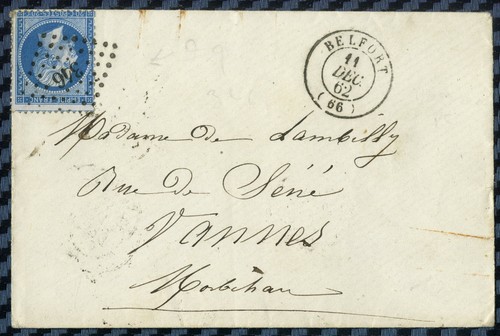 346
BELFORT
11
DÉC.
62
(66)
Madame de Lambilly
Rue de Séné
VANNES
Morbihan